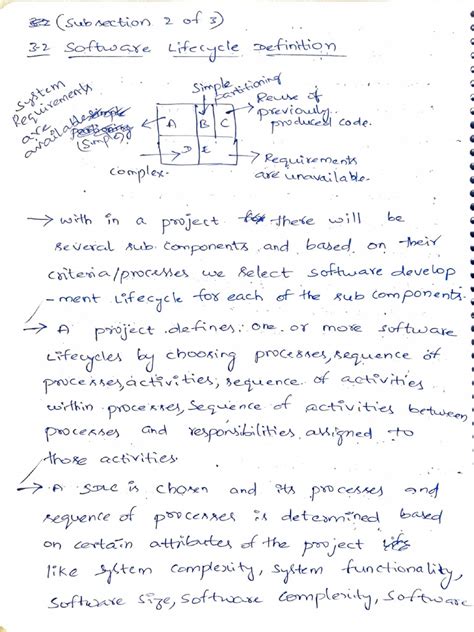 3.2 (Subsection 2 of 3)
3.2 Software Lifecycle Definition
System
Requirements
are
available
(Simple)
Simple
partitioning
Reuse of
previously
produced code.
A B C
D E
complex.
Requirements
are unavailable.
→ with in a project there will be
several sub components and based on their
criteria/processes we select software develop
-ment Lifecycle for each of the sub components.
→ A project defines one or more software
Lifecycles by choosing processes, sequence of
processes, activities, sequence of activities
within processes, Sequence of activities between
processes and responsibilities assigned to
those activities.
→ A SDLC is chosen and its processes and
sequence of processes is determined based
on certain attributes of the project
like system complexity, system functionality,
Software size, Software complexity, Software